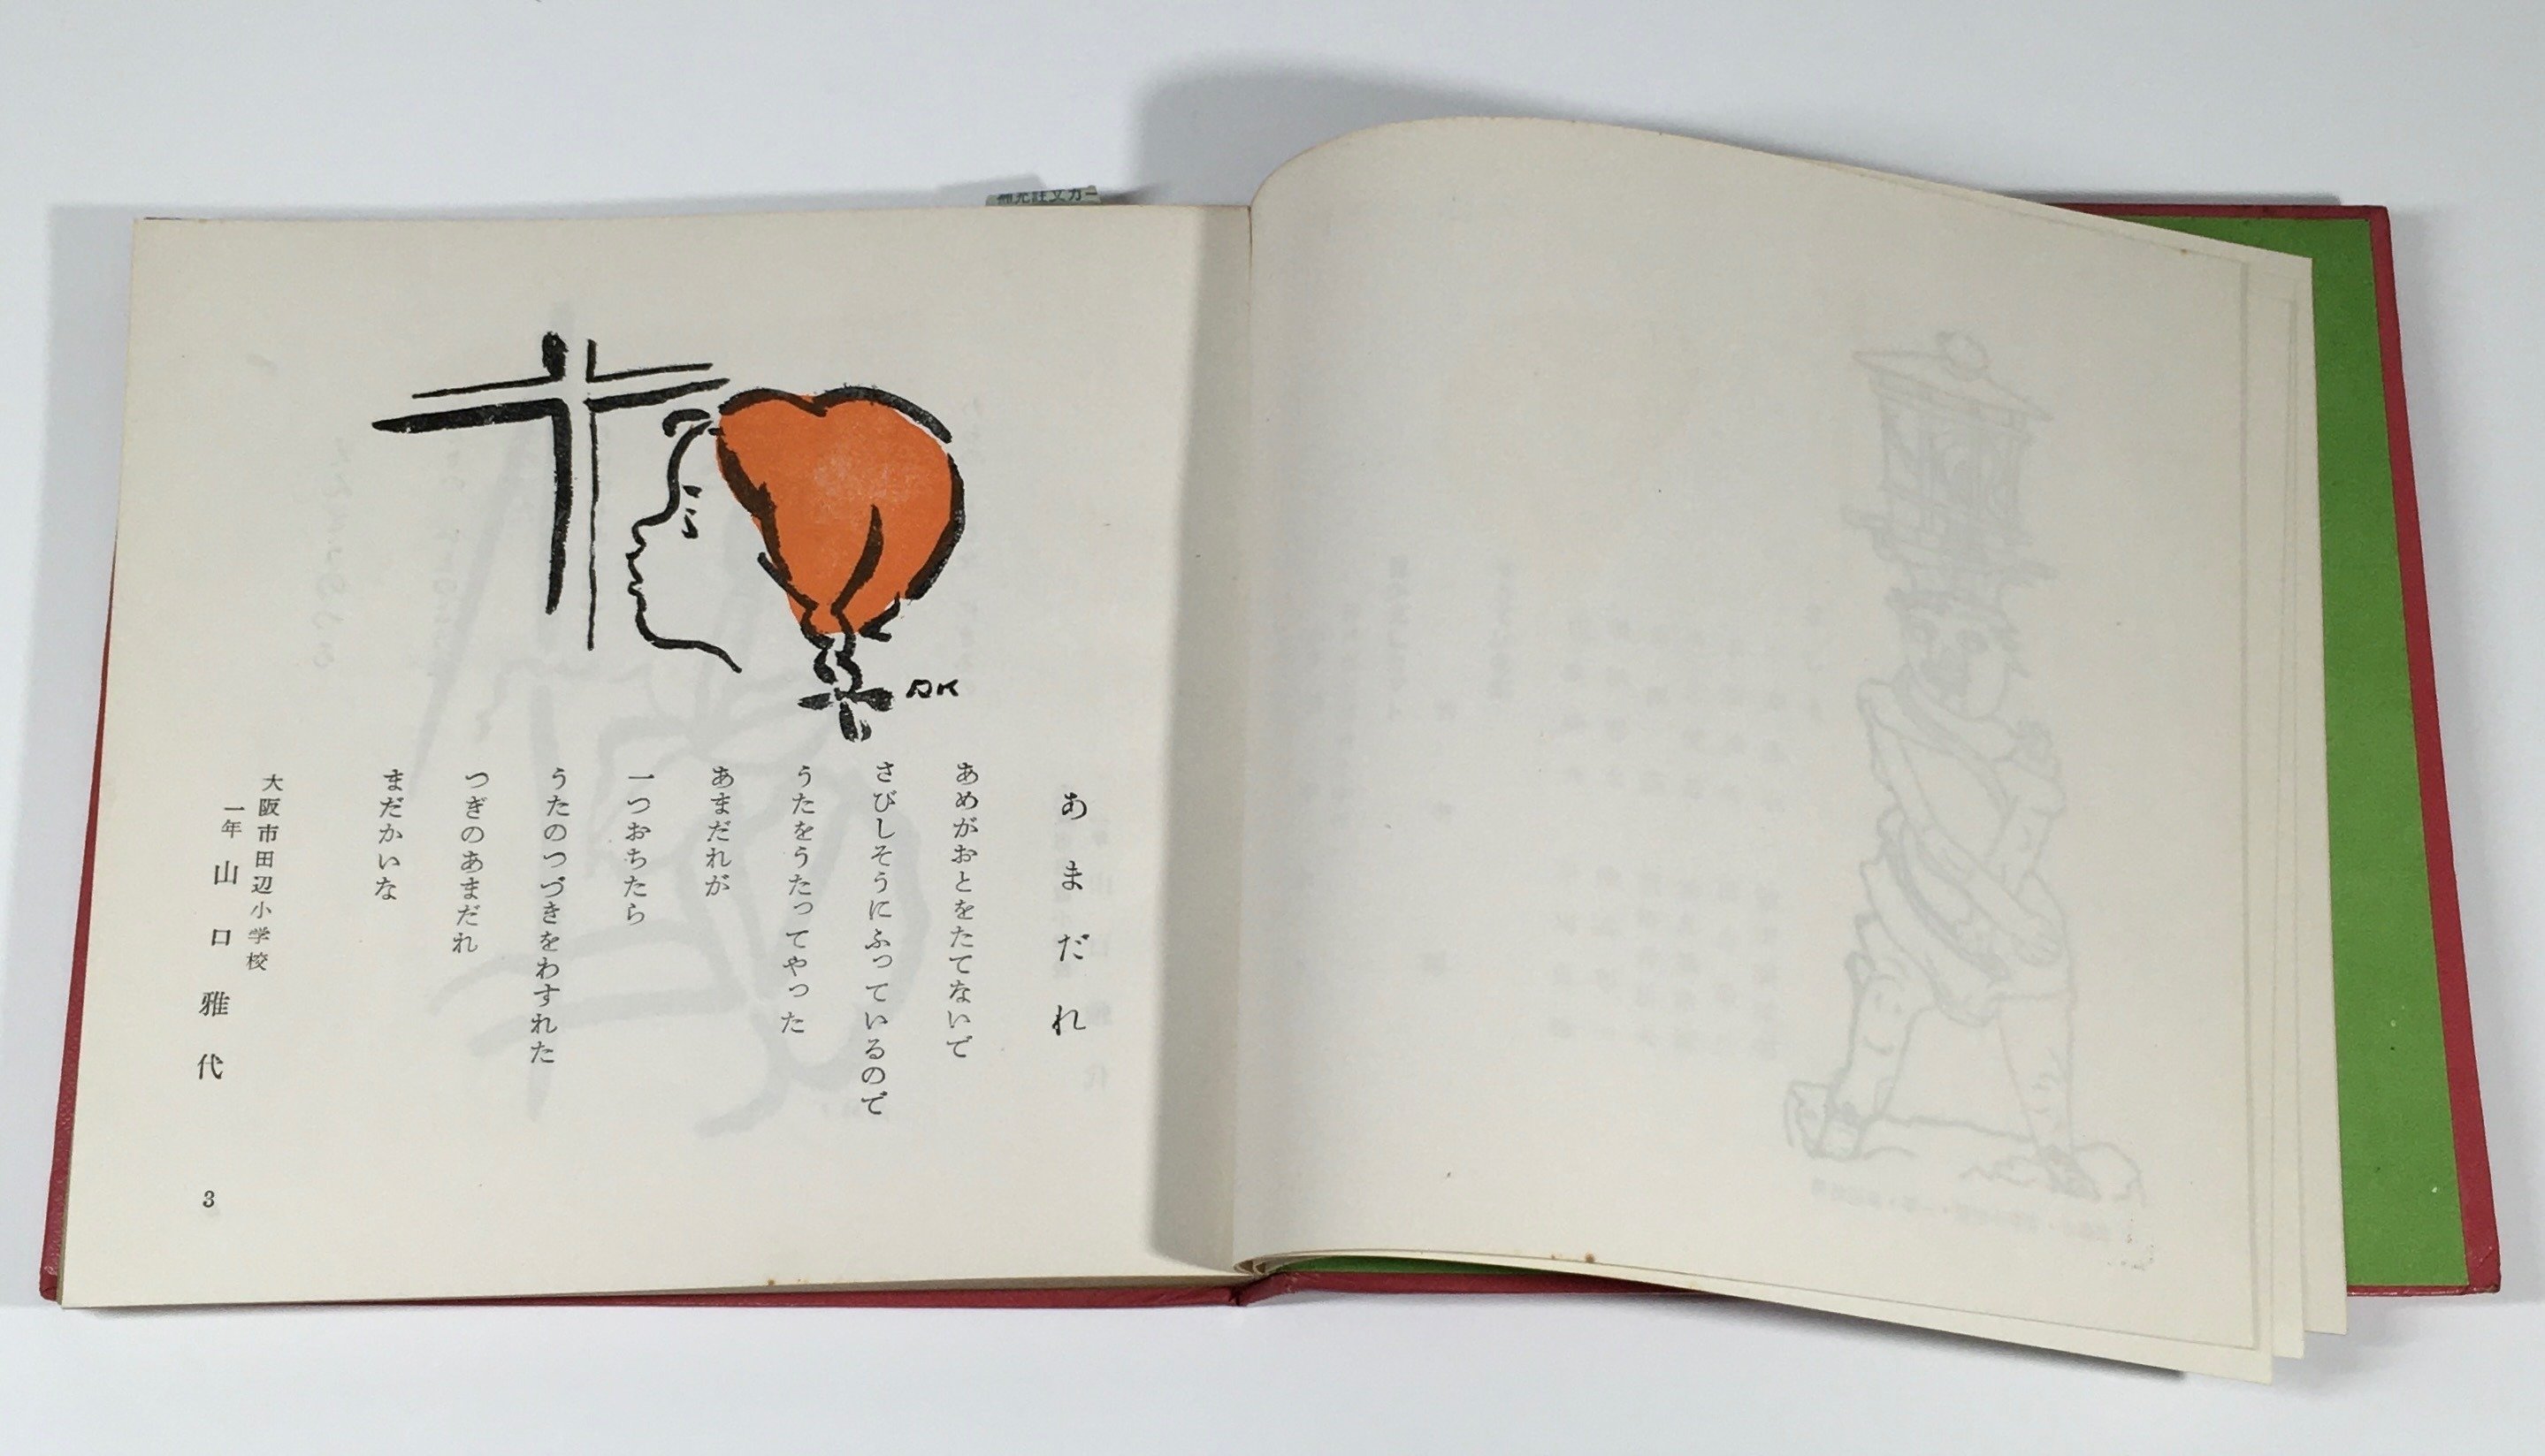 補充註文カー
あまだれ
あめがおとをたてないで
さびしそうにふっているので
うたをうたってやった
あまだれが
一つおちたら
うたのつづきをわすれた
つぎのあまだれ
まだかいな
大阪市田辺小学校
一年 山口雅代
RK
3